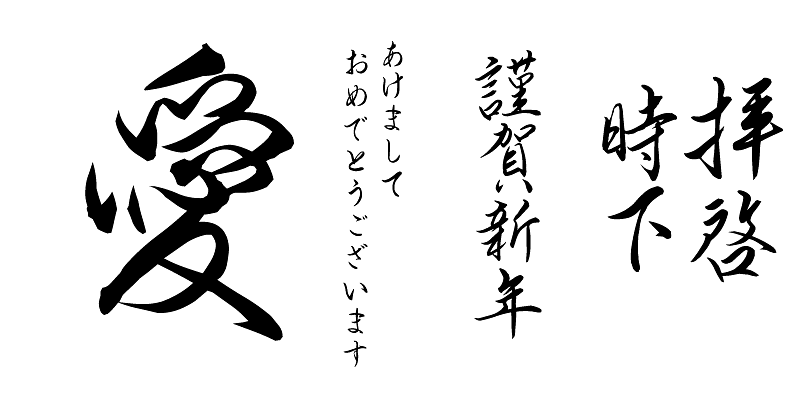 拝啓
時下
謹賀新年
あけまして
おめでとうございます
愛